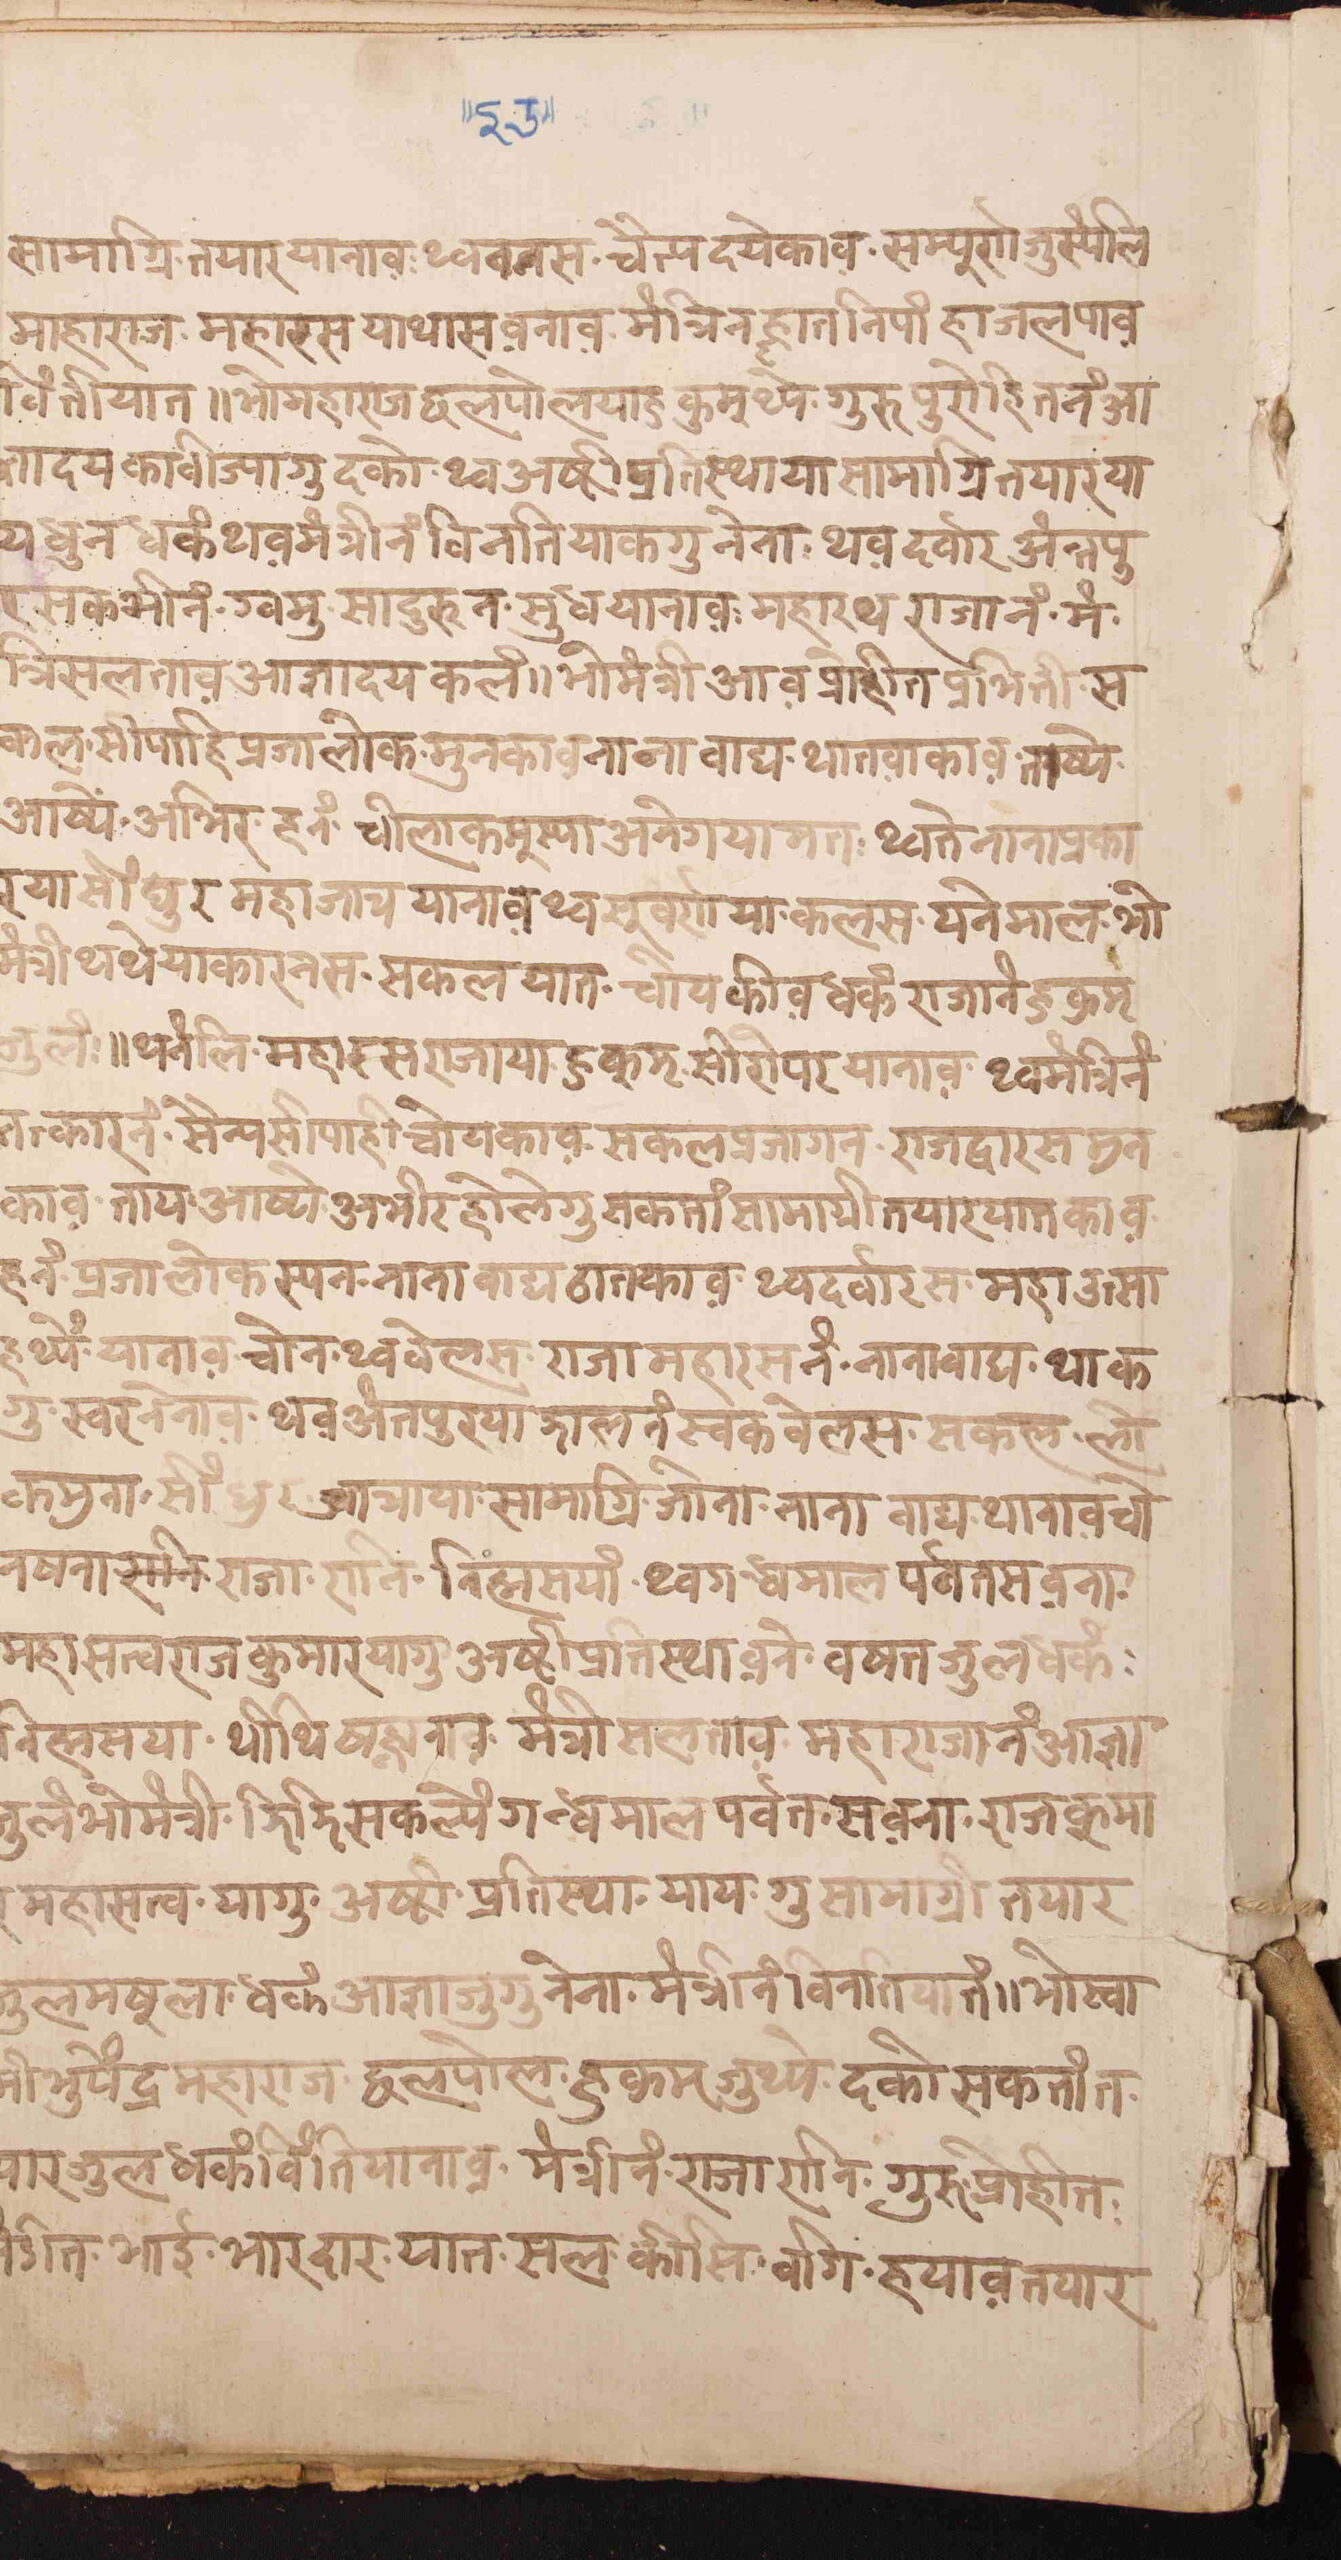 ॥२७॥
सामाग्रि तयार यानाव थ्व वनस चैत्य दयेकाव सम्पुर्ण जुस्यंलि
माहाराज महारस याथास वनाव मंत्रिन ह्लात निपां हाजलपाव
विंतीयात ॥ भो महाराज छलपोलया हुकुम् थ्यें गुरु पुरोहितनं आ
ज्ञा दयकाविज्यागु दको थ्व अष्टी प्रतिस्थाया सामाग्रि तयार या
यधुन धकं थव मंत्रीनं विनति याकगु नेना थव दर्वार अंन्तपु
र सकभीनं ग्वमु सादुरुन सुध यानाव महारथ राजानं मं
त्रि सलताव आज्ञा दयकलं ॥ भो मंत्री आव प्रोहीत प्रभिती स
कल सीपाहि प्रजालोक मुनकाव नाना वाद्य थातवाकाव ताय्
आष्यें अभिर हनं चीलाकमुस्या अनेग यामत थ्वते नाना प्रका
रया सोंद्युर महाजात्र यानाव थ्व सुवर्णया कलस यने माल भो
मंत्री थथे याकारनस सकल यात चोयकीव धकं राजानं हुकुम्
जुलं ॥ थनंलि महारस राजाया हुकुम् सीरोपर यानाव थ्व मंत्रिनं
तत्कारनं सैन्य सीपाही चोयकाव सकल प्रजागन राजद्वारस मुन
काव ताय आष्ये अभीर होलेगु सकतां सामाग्री तयार यातकाव
हनं प्रजालोक स्यन नाना वाद्य थातकाव थ्व दर्वारस महा उसा
ह थ्यें यानाव चोन थ्ववेलस राजा महारसनं नानावाद्य थाक
गु स्वर नेनाव थव अंतपुरया झालनं स्वकवेलस सकल लो
कमुना सोंधुर जात्राया सामाग्रि जोना नाना वाद्य थानाव चो
नषना राजा रानि निह्मसयां थ्व गंधमाल पर्वतस वना
महासत्वराजकुमारयागु अष्टी प्रतिस्था वने वषत जुल धकं
निह्मसया थीथि मंत्री सलताव महाराजानं आज्ञा
जुलं भो मंत्री झिझि सकल्यें गन्धमाल पर्वत सवना राजकुमा
र महासत्व यागु अष्टी प्रतिस्था यायगु सामाग्री तयार
जुल मषुला धकं आज्ञा जुगु नेना मंत्रीनं विनति यातं ॥ भो स्वा
मी भुपेंद्र महाराज छलपोल हुकुम् जुथ्यें दको सकतां त
यार जुल धकं विंति यानाव मंत्रीनं राजा रानि गुरु प्रोहीत
भाई भारदार यात सल कीसि वगि हयाव तयार